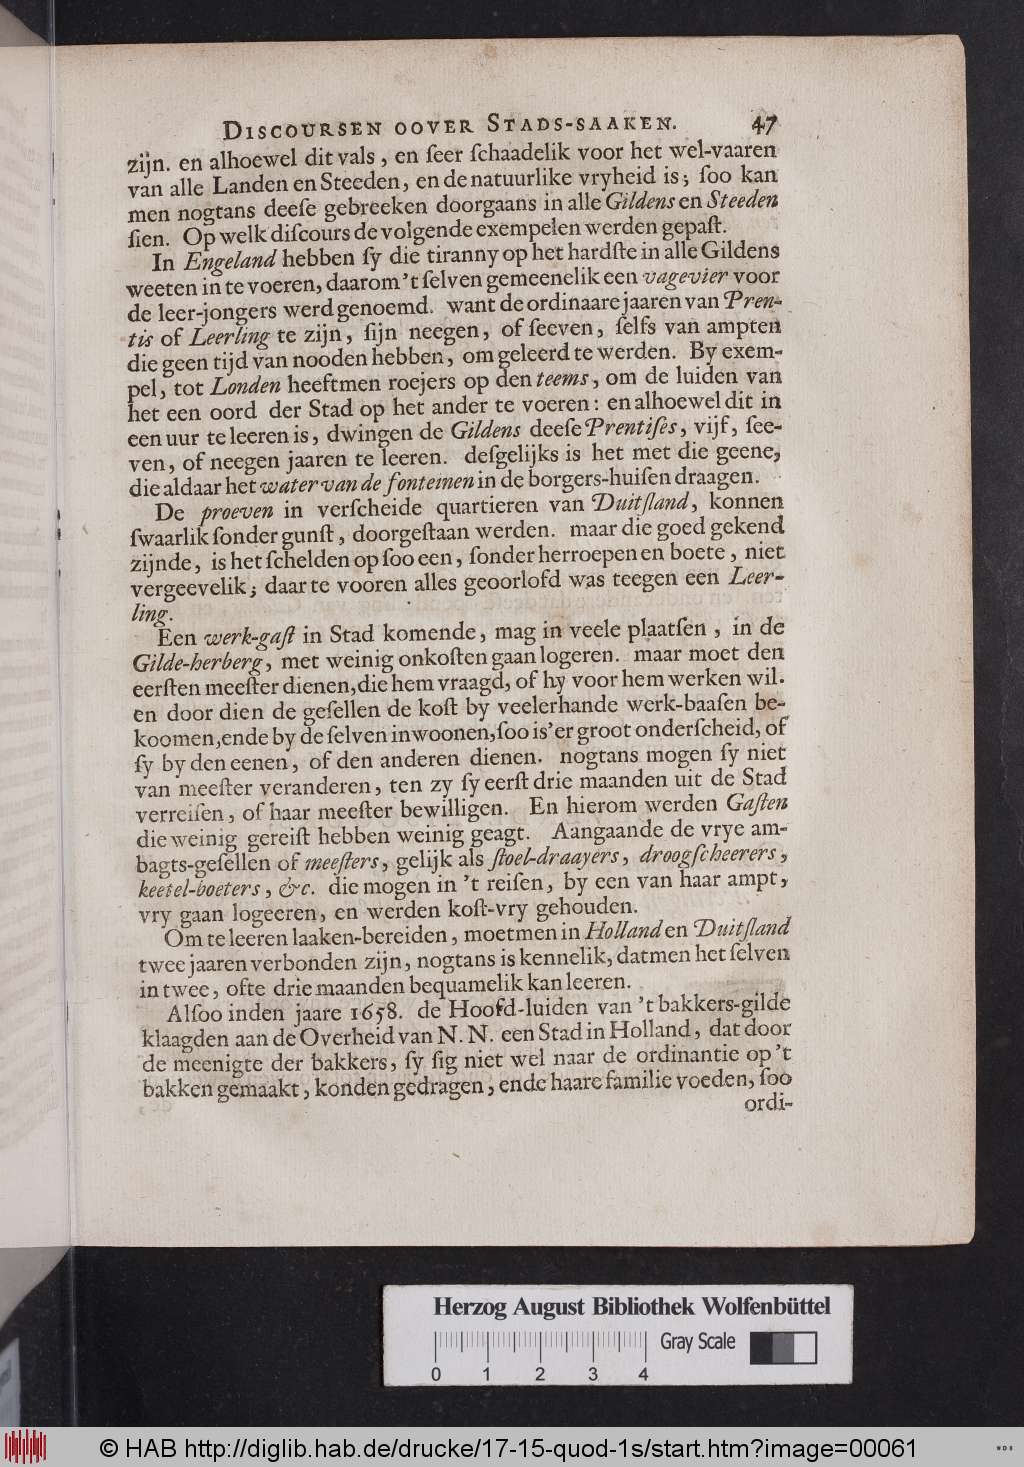 DISCOURSEN OOVER STADS-SAAKEN. 47
zijn. en alhoewel dit vals, en ſeer ſchaadelik voor het wel-vaaren
van alle Landen en Steeden, en de natuurlike vryheid is; ſoo kan
men nogtans deeſe gebreeken doorgaans in alle Gildens en Steeden
ſien. Op welk diſcours de volgende exempelen werden gepaſt.
In Engeland hebben ſy die tiranny op het hardſte in alle Gildens
weeten in te voeren, daarom 't ſelven gemeenelik een vagevier voor
de leer-jongers werd genoemd. want de ordinaare jaaren van Pren-
tis of Leerling te zijn, ſijn neegen, of ſeeven, ſelfs van ampten
die geen tijd van nooden hebben, om geleerd te werden. By exem-
pel, tot Londen heeftmen roejers op den teems, om de luiden van
het een oord der Stad op het ander te voeren: en alhoewel dit in
een uur te leeren is, dwingen de Gildens deeſe Prentiſes, vijf, ſee-
ven, of neegen jaaren te leeren. deſgelijks is het met die geene,
die aldaar het water van de fonteinen in de borgers-huiſen draagen.
De proeven in verſcheide quartieren van Duitſland, konnen
ſwaarlik ſonder gunſt, doorgeſtaan werden. maar die goed gekend
zijnde, is het ſchelden op ſoo een, ſonder herroepen en boete, niet
vergeevelik; daar te vooren alles geoorlofd was teegen een Leer-
ling.
Een werk-gaſt in Stad komende, mag in veele plaatſen, in de
Gilde-herberg, met weinig onkoſten gaan logeren. maar moet den
eerſten meeſter dienen, die hem vraagd, of hy voor hem werken wil.
en door dien de geſellen de koſt by veelerhande werk-baaſen be-
koomen, ende by de ſelven inwoonen, ſoo is'er groot onderſcheid, of
ſy by den eenen, of den anderen dienen. nogtans mogen ſy niet
van meeſter veranderen, ten zy ſy eerſt drie maanden uit de Stad
verreiſen, of haar meeſter bewilligen. En hierom werden Gaſten
die weinig gereiſt hebben weinig geagt. Aangaande de vrye am-
bagts-geſellen of meeſters, gelijk als ſtoel-draayers, droogſcheerers,
keetel-boeters, &c. die mogen in 't reiſen, by een van haar ampt,
vry gaan logeeren, en werden koſt-vry gehouden.
Om te leeren laaken-bereiden, moetmen in Holland en Duitſland
twee jaaren verbonden zijn, nogtans is kennelik, datmen het ſelven
in twee, ofte drie maanden bequamelik kan leeren.
Alſoo in den jaare 1658. de Hoofd-luiden van 't bakkers-gilde
klaagden aan de Overheid van N. N. een Stad in Holland, dat door
de meenigte der bakkers, ſy ſig niet wel naar de ordinantie op 't
bakken gemaakt, konden gedragen, ende haare familie voeden, ſoo
ordi-
Herzog August Bibliothek Wolfenbüttel
Gray Scale
0 1 2 3 4
© HAB http://diglib.hab.de/drucke/17-15-quod-1s/start.htm?image=00061